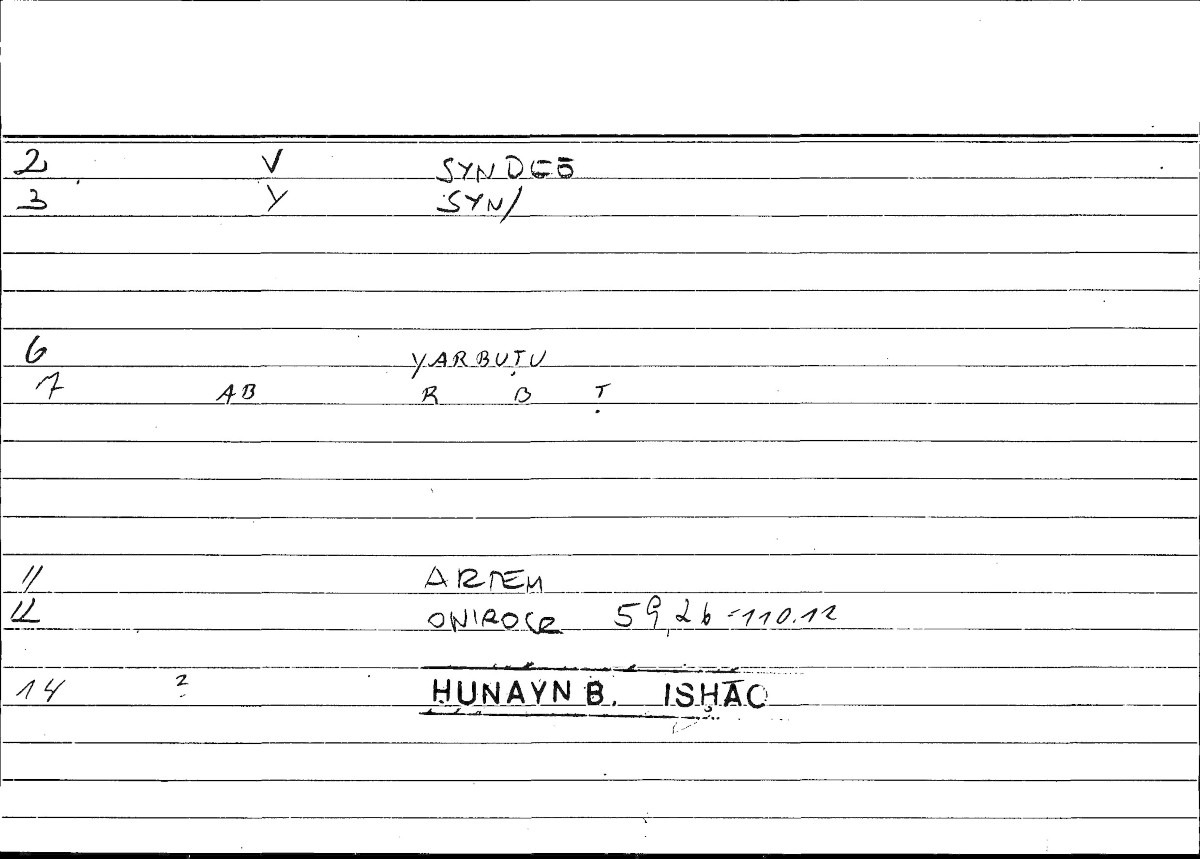 2 V SYNDEŌ
3 Y SYN/
6 YARBUṬU
7 AB R B Ṭ
11 ARTEM
12 ONIROCR 59,26-110.12
14 2 ḤUNAYN B. ISḤĀQ